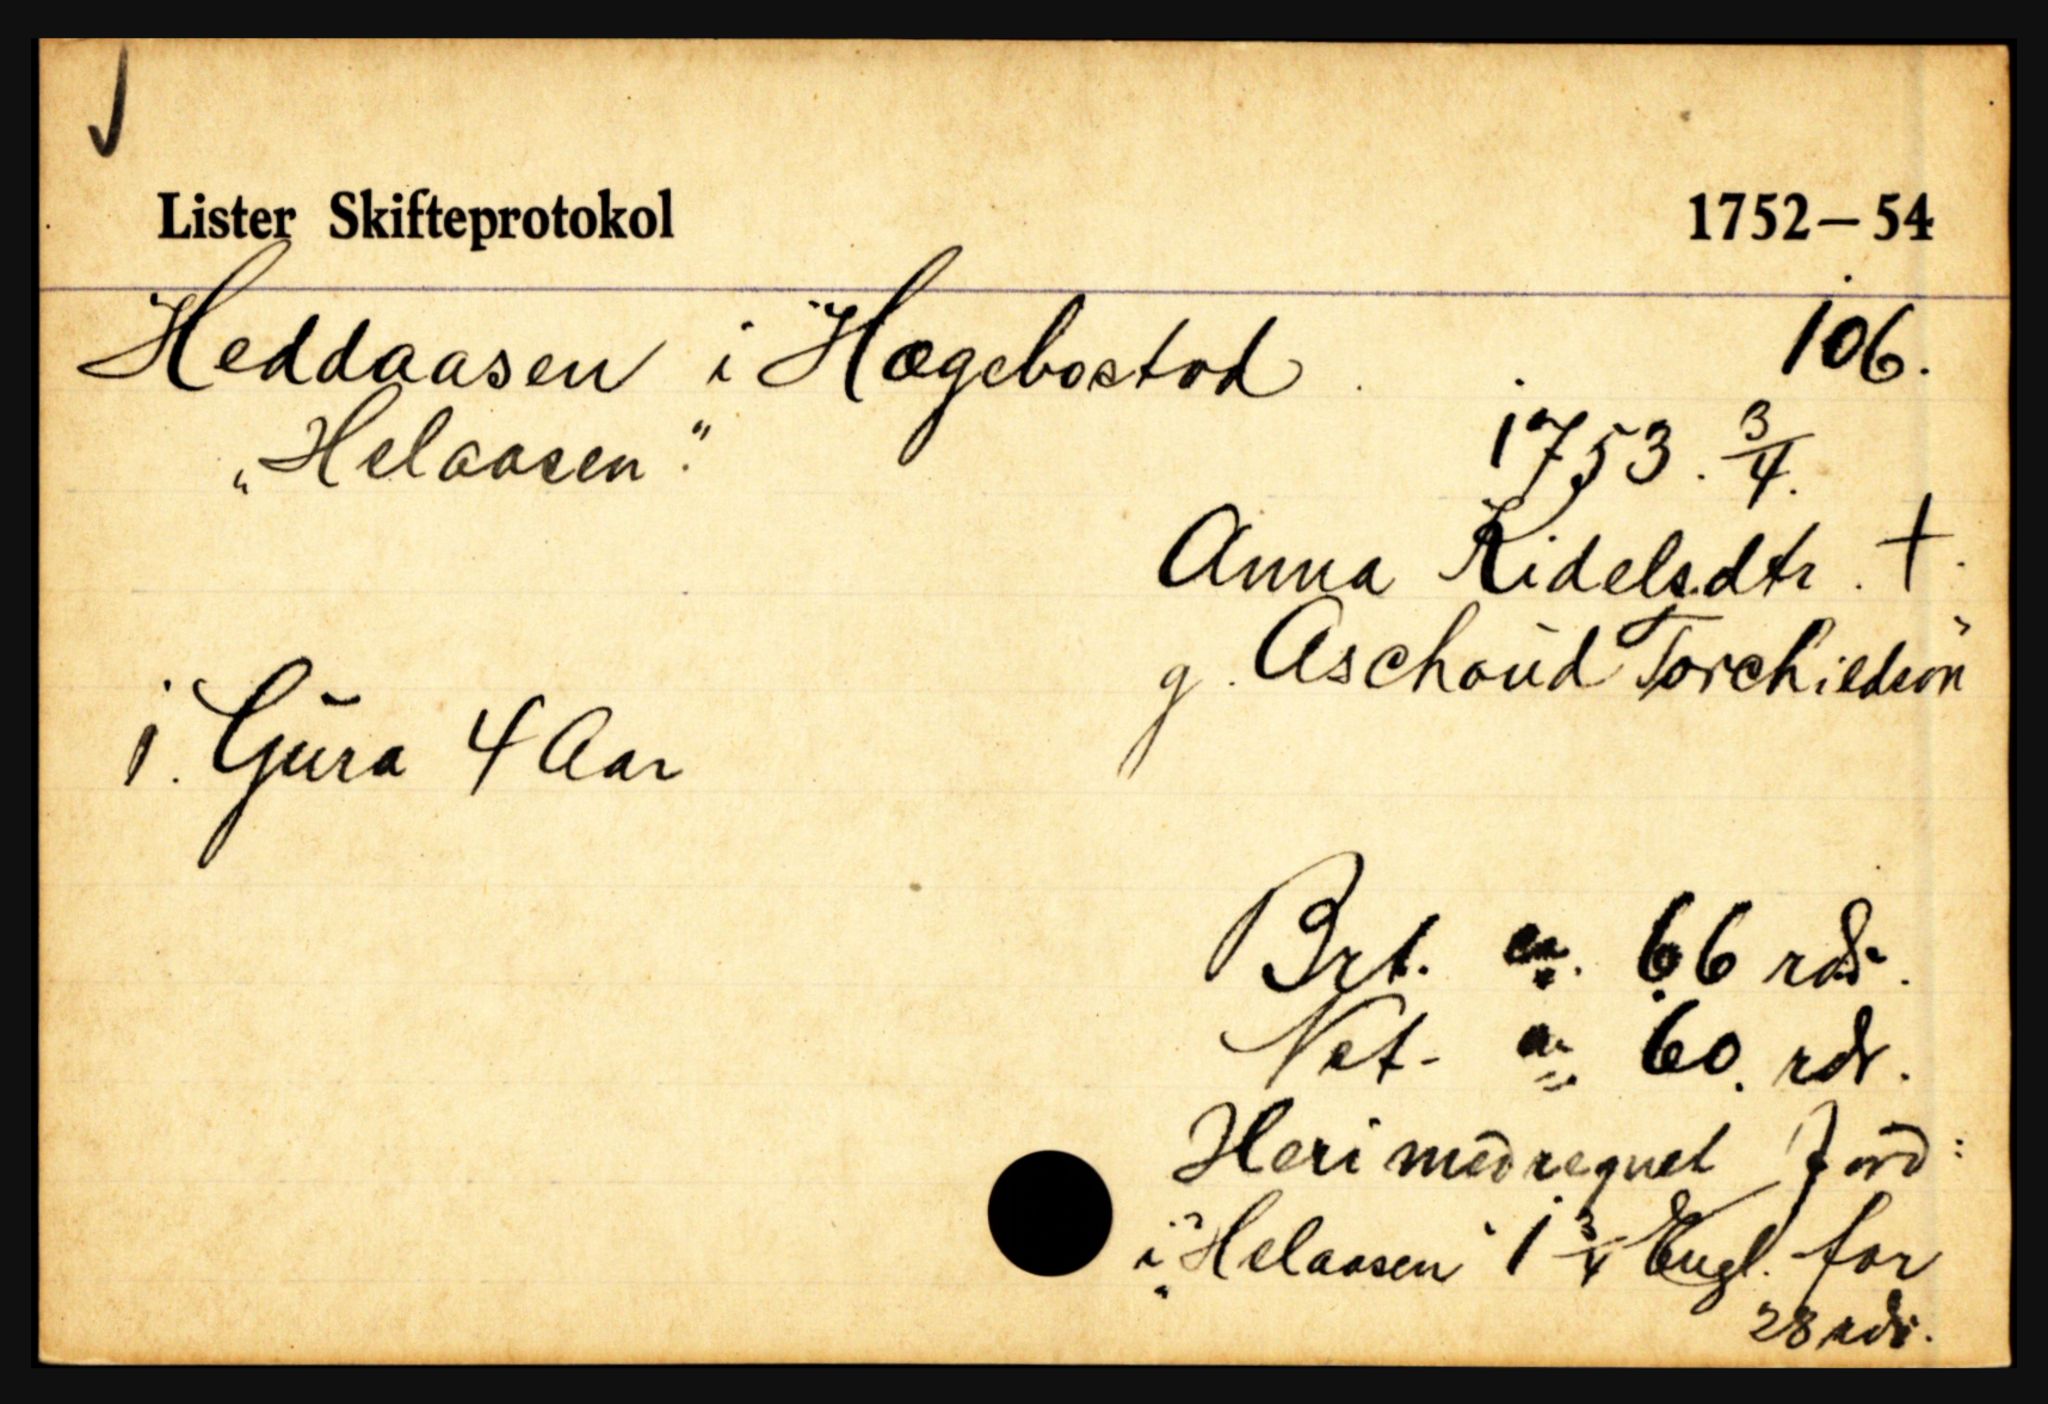 Lister Skifteprotokol 1752–54
Heddaasen i Hægebostad 106.
„Helaasen". 1753. 3/4.
Anna Kidelsdtr. +.
g. Aschoŭd Torchieldsøn
1. Gŭra 4 Aar
Brt. ca. 66 rdr.
Net- ca. 60 rdr.
Heri medregnet Jord:
i „Helaasen" 1 3/4 Engl. for
28 rdr.